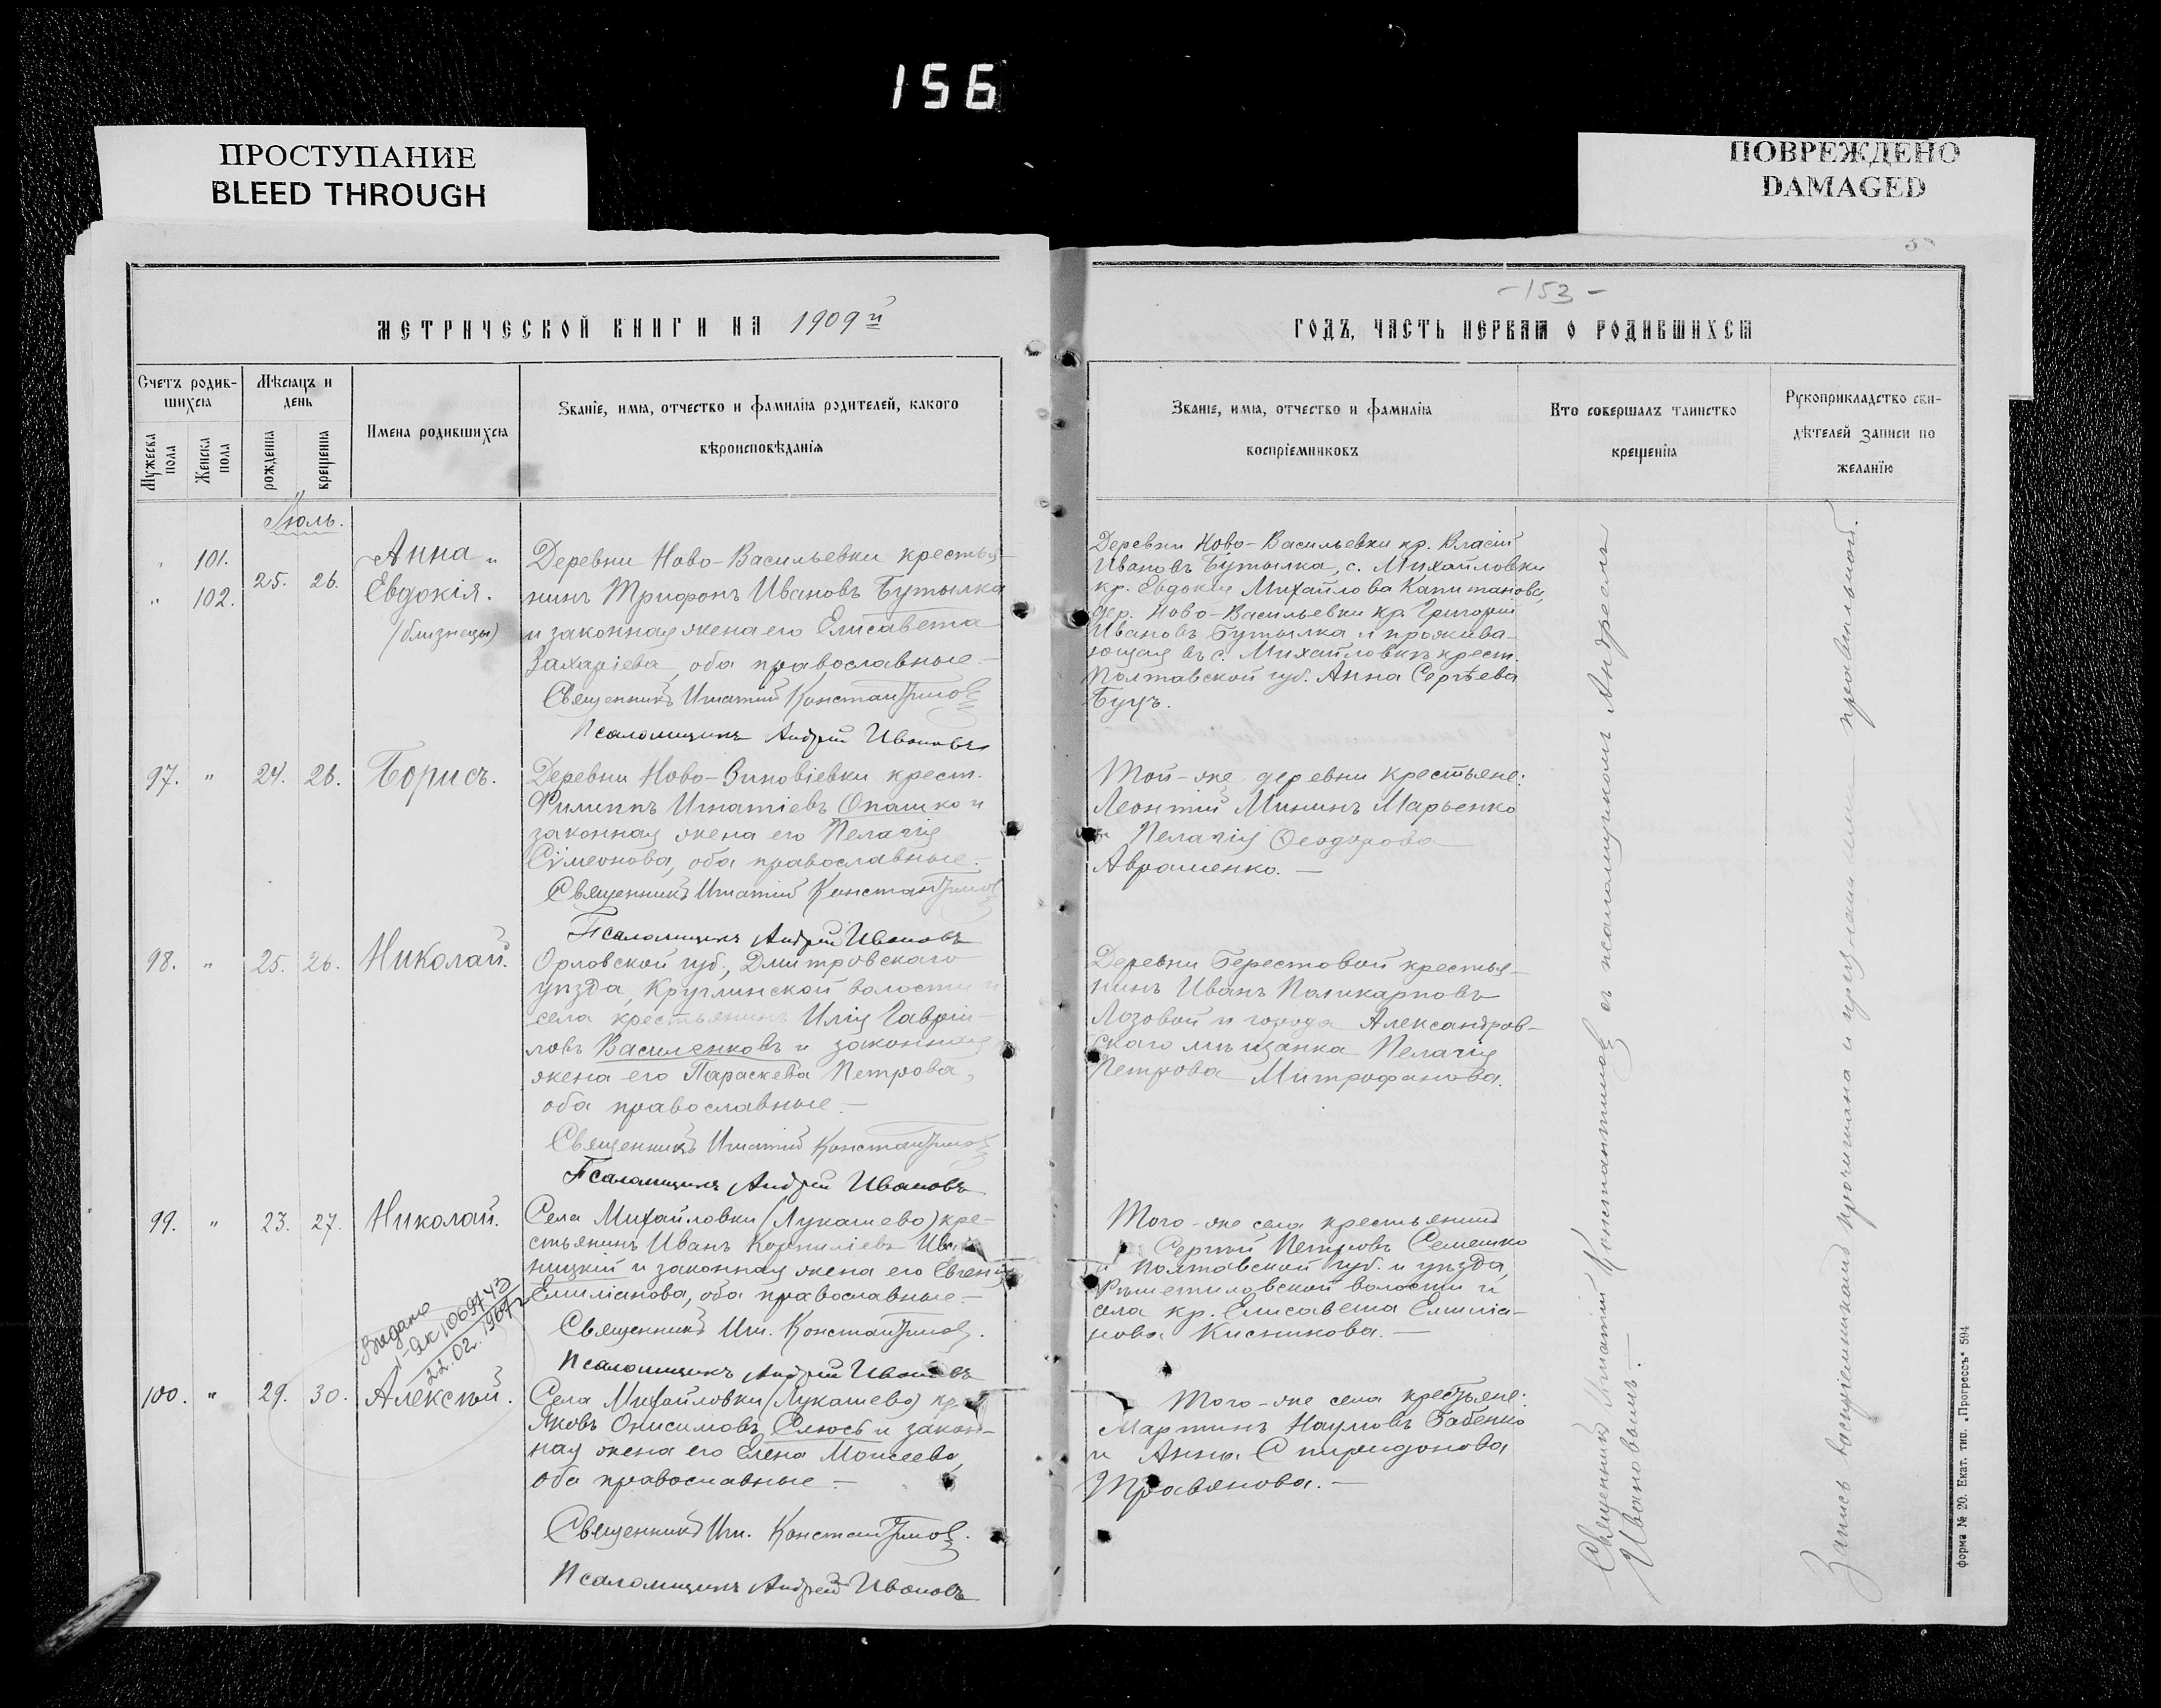 156
ПРОСТУПАНИЕ
BLEED THROUGH
ПОВРЕЖДЕНО
DAMAGED
38
МЕТРИЧЕСКОЙ КНИГИ НА 1909й
Счетъ родив-
шихся
Мѣсяцъ и
день
Мужеска
пола
Женска
пола
рожденія
крещенія
Имена родившихся
Званіе, имя, отчество и фамилія родителей, какого
вѣроисповѣданія
Іюль.
" 101.
" 102.
25. 26.
Анна и
Евдокія.
(близнецы)
Деревни Ново-Васильевки крестья-
нинъ Трифонъ Ивановъ Бутылка
и законная жена его Елисавета
Захаріева, оба православные.-
Священникъ Игнатій Константиновъ
Псаломщикъ Андрей Ивановъ
97. " 24. 26. Борисъ.
Деревни Ново-Зиновіевки крест.
Филиппъ Игнатіевъ Опашко и
законная жена его Пелагія
Сѵмеонова, оба православные.-
Священникъ Игнатій Константиновъ
Псаломщикъ Андрей Ивановъ
98. " 25. 26. Николай.
Орловской губ., Дмитровскаго
уѣзда, Круглинской волости и
села крестьянинъ Илія Гаврiи-
ловъ Василенковъ и законная
жена его Параскева Петрова,
оба православные.-
Священникъ Игнатій Константиновъ
Псаломщикъ Андрей Ивановъ
99. " 23. 27. Николай.
Села Михайловки (Лукашево) кре-
стьянинъ Иванъ Корниліевъ
ницкій и законная жена его Евгенія
Емиліанова, оба православные.-
Священникъ Игн. Константиновъ.
Псаломщикъ Андрей Ивановъ
Выдано
1069743
22.02.1967г
100. " 29. 30. Алексѣй.
Села Михайловки (Лукашево) кр.
Яковъ Онисимовъ Слюсь и закон-
ная жена его Елена Моисеева,
оба православные.-
Священникъ Игн. Константиновъ.
Псаломщикъ Андрей Ивановъ
-153-
ГОДЪ, ЧАСТЬ ПЕРВАЯ О РОДИВШИХСЯ
Званіе, имя, отчество и фамилія
воспріемниковъ
Кто совершалъ таинство
крещенія
Рукоприкладство сви-
дѣтелей записи по
желанію
Деревни Ново-Васильевки кр. Власій
Ивановъ Бутылка, с. Михайловки
кр. Евдокія Михайлова Капитанова,
дер. Ново-Васильевки кр. Григорій
Ивановъ Бутылка и прожива-
ющая въ с. Михайловкѣ крест.
Полтавской губ. Анна Сергѣева
Буцъ.
Той-же деревни крестьяне:
Леонтій Мининъ Марьенко
и Пелагія Ѳеодорова
Авраменко.-
Деревни Берестовой крестья-
нинъ Иванъ Поликарповъ
Лозовой и города Александров-
скаго мѣщанка Пелагія
Петрова Митрофанова.
Того-же села крестьянинъ
Сергій Петровъ Семешко
и Полтавской губ. и уѣзда,
Рѣшетиловской волости и
села кр. Елисавета Емилiа-
нова Кисникова.-
Того-же села крестьяне:
Мартинъ Наумовъ Бабенко
и Анна Спиридонова
Травянова.-
Священникъ Игнатій Константиновъ съ псаломщикомъ Андреемъ
Ивановымъ.-
Запись воспріемниками прочитана и признана ими правильной.
форма № 20. Екат. тип. „Прогрессъ“ 594